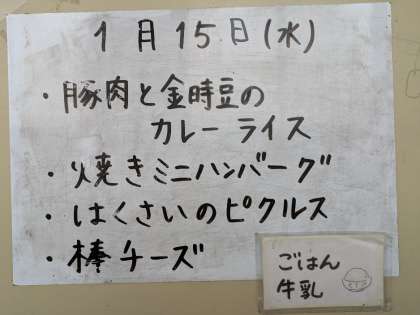 1月15日(水)
・豚肉と金時豆の
カレーライス
・焼きミニハンバーグ
・はくさいのピクルス
・棒チーズ
ごはん
牛乳